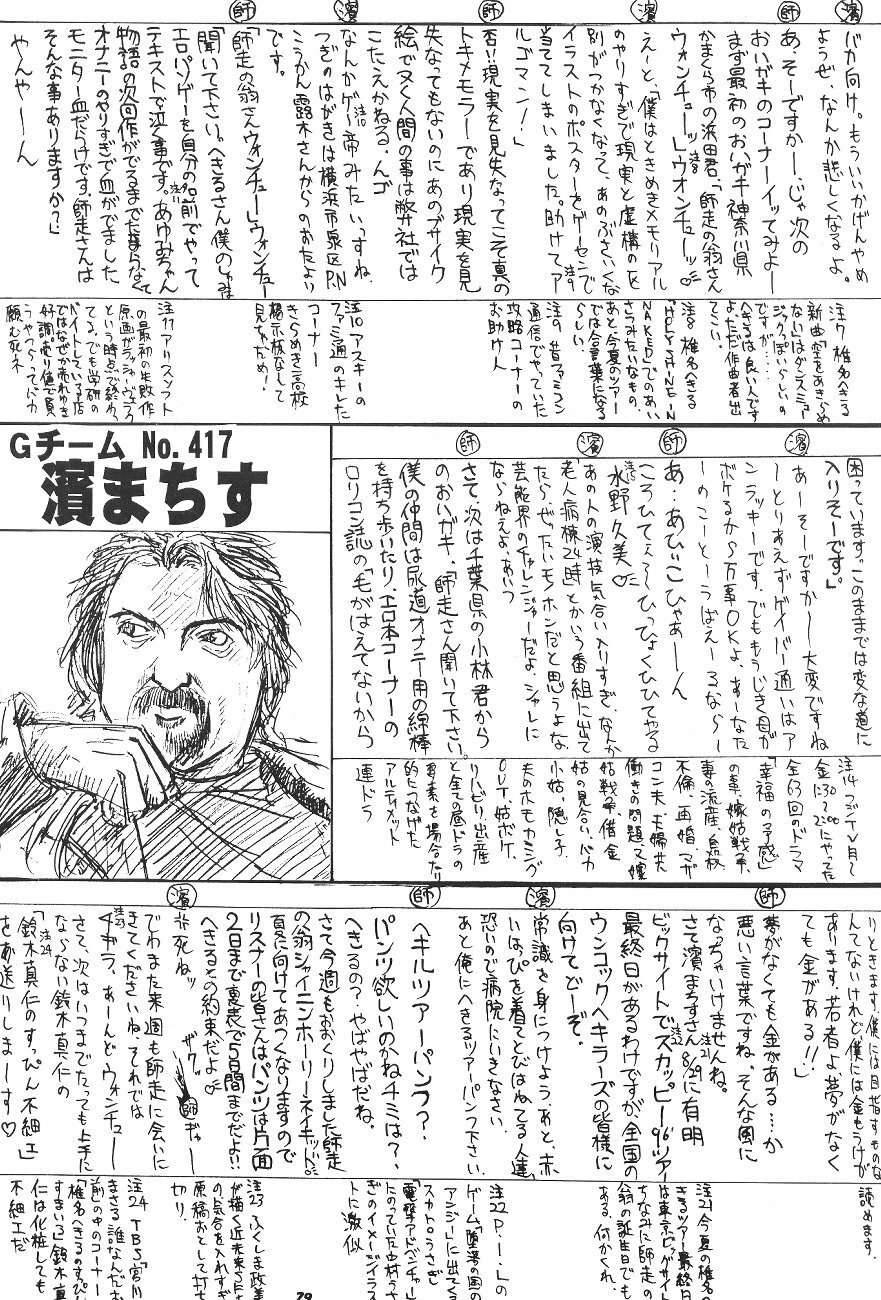 濱
バカ向け。もういいかげんやめ
ようぜ、なんか悲しくなるよ。
師
あ、そーですかー、じゃ次の
おいガキのコーナーイッてみよー
まず最初のおいガキ神奈川県
かまくら市の浜田君、「師走の翁さん
ウォンチューッ」ウォンチューッ♡
濱
えーと、「僕はときめきメモリアル
のやりすぎで現実と虚構のく
別がつかなくなって、あのぶさいくな
イラストのポスターをゲーセンで
当ててしまいました。助けてア
ルゴマン!」
師
否!!現実を見失なってこそ真の
トキメモラーであり現実を見
失なってもないのにあのブサイク
絵でヌく人間の事は弊社では
こたえかねる、んゴ
濱
なんかゲー帝みたいっすね。
つぎのはがきは横浜市泉区P.N
こうかん露木さんからのおたより
です。
師
「師走の翁さんウォンチュー」ウォンチュー
「聞いて下さい。へきるさん僕のしゅみは
エロパソゲーを自分の名前でやって
テキストで泣く事です。あゆみちゃん
物語の次回作がでるまでたまらなくて
オナニーのやりすぎで血がでました
モニター血だらけです。師走さんは
そんな事ありますか?」
やんやーーん
注7 椎名へきる
新曲「空をあきらめ
ない」はダンスミュー
ジックっぽいらしいの
ですが……
へきるは良い人です
よ。ただ作曲者出
てこい。
注8 椎名へきる
「HOLY SHINE IN
NAKED」でのあい
さつみたいなもの。
あと今夏のツアー
では合言葉になる
らしい。
注9 昔ファミコン
通信でやっていた
攻路コーナーの
お助け人
注10 アスキーの
ファミ通のキレた
コーナー
きらめき高校
掲示板なして
見ちゃだめ!
注11 アリスソフト
の最初の失敗作
原画がラッシャーヴェラク
という時点で終わっ
てる。でも学研の
バイトしている店
ではなぜか売れゆき
好調
うやつらってバカ
顧む死ネ
Gチーム No.417
濱まちす
困っています。このままでは変な道に
入りそーです。」
濱
あーそーですかー大変ですね
ーとりあえずゲイバー通いはア
ンラッキーです。でももうじき母が
ボケるから万事OKよ、あーなた
ーのこーとーうばえーるならー
師
あ…あひいこひゃあーん
ころひてよ〜ひっひょくひひてやる
濱
水野久美♡
あの人の演技気合い入りすぎ、なんか
「老人病棟24時」とかいう番組に出て
たら、ぜったいモノホンだと思うよな
芸能界のチャレンジャーだよ、シャレに
ならねえよ、あいつ
師
さて、次は千葉県の小林君から
のおいガキ、「師走さん聞いて下さい。
僕の仲間は尿道オナニー用の綿棒
を持ち歩いたり、エロ本コーナーの
ロリコン誌の「毛がはえてないから
注14 フジTV月〜
金 1:30〜2:00にやってた
全63回のドラマ
「幸福の予感」
の事、嫁姑戦争、
妻の流産、自殺
不倫、再婚、マザ
コン夫、主婦共
働きの問題、又嫁
姑戦争、借金
姑の見合い、バカ
小姑、隠し子、
夫のホモカミング
OUT、姑ボケ、
リハビリ、出産
と全ての昼ドラの
要素を場合たり
的につなげた
アルティメット
連ドラ
りときます、僕には目指すものな
んてないけれど僕には金もうけが
あります。若者よ夢がなく
ても金がある!!」
師
夢がなくても金がある…か
悪い言葉ですね、そんな風に
なっちゃいけませんね。
さて濱まちすさん、8/29に有明
ビックサイトでスカッピー96'ツアー
最終日があるわけですが、全国の
ウンコックヘキラーズの皆様に
向けてどーぞ。
濱
常識を身につけよう、あと、赤
いはっぴを着てとびはねてる人達
恐いので病院にいきなさい
あと俺にへきるツアーパンフ下さい。
師
ヘキルツアーパンフ?
パンツ欲しいのかねチミは?、
へきるの?、やばやばだね。
さて今週もおくりしました師走
の翁シャイニンホーリーネイキッド。
夏に向けてあつくなりますので
リスナーの皆さんはパンツは片面
2日まで裏表で5日間までだよ!!
へきるとの約束だよ♡
濱
死ねッ ザク。
師 ギャー
でわまた来週も師走に会いに
きてくださいね、それでは
チャカラ、あーんどウォンチュー
さて、次はいつまでたっても上手に
ならない鈴木真仁の
「鈴木真仁のすっぴん不細工」
をお送りしまーす♡
読めます。
注21 今夏の椎名へ
きるツアー最終日
は東京ビッグサイト
ちなみに師走の
翁の誕生日でも
ある、何かくれ、
注22 P.I.Lの
ゲーム「堕落の国の
アンジー」に出てくる
スカトロうさぎ
「電撃アドベンチャー」
にのっていた中村うさ
ぎのイメージイラス
トに激似
注23 ふくしま政美
が描く近未来
の気合を入れすぎ
原稿おとして打ち
切り。
注24 TBS「宮川
まさる 誰なんだお
前」の中のコーナー
「椎名へきるのすっぴん
すまいる」鈴木真
仁は化粧しても
不細工だ
79